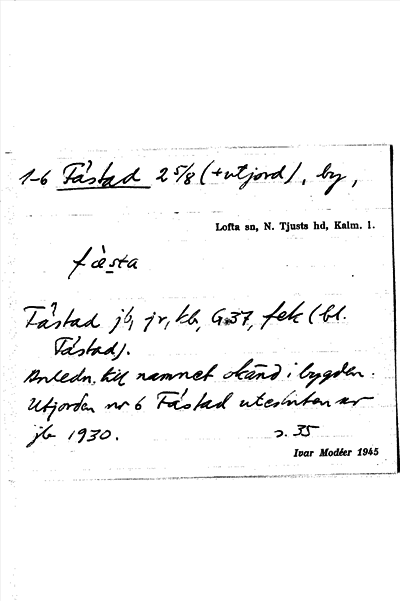 1-6 Fåstad 2 5/8 (+utjord), by,
Lofta sn, N. Tjusts hd, Kalm. l.
fàsta
Fåstad jb, jr, kb, G 37, fek (bl.
Fåstad).
Anledn. till namnet okänd i bygden.
Utjorden nr 6 Fåstad utesluten ur
jb 1930. s. 35
Ivar Modéer 1945